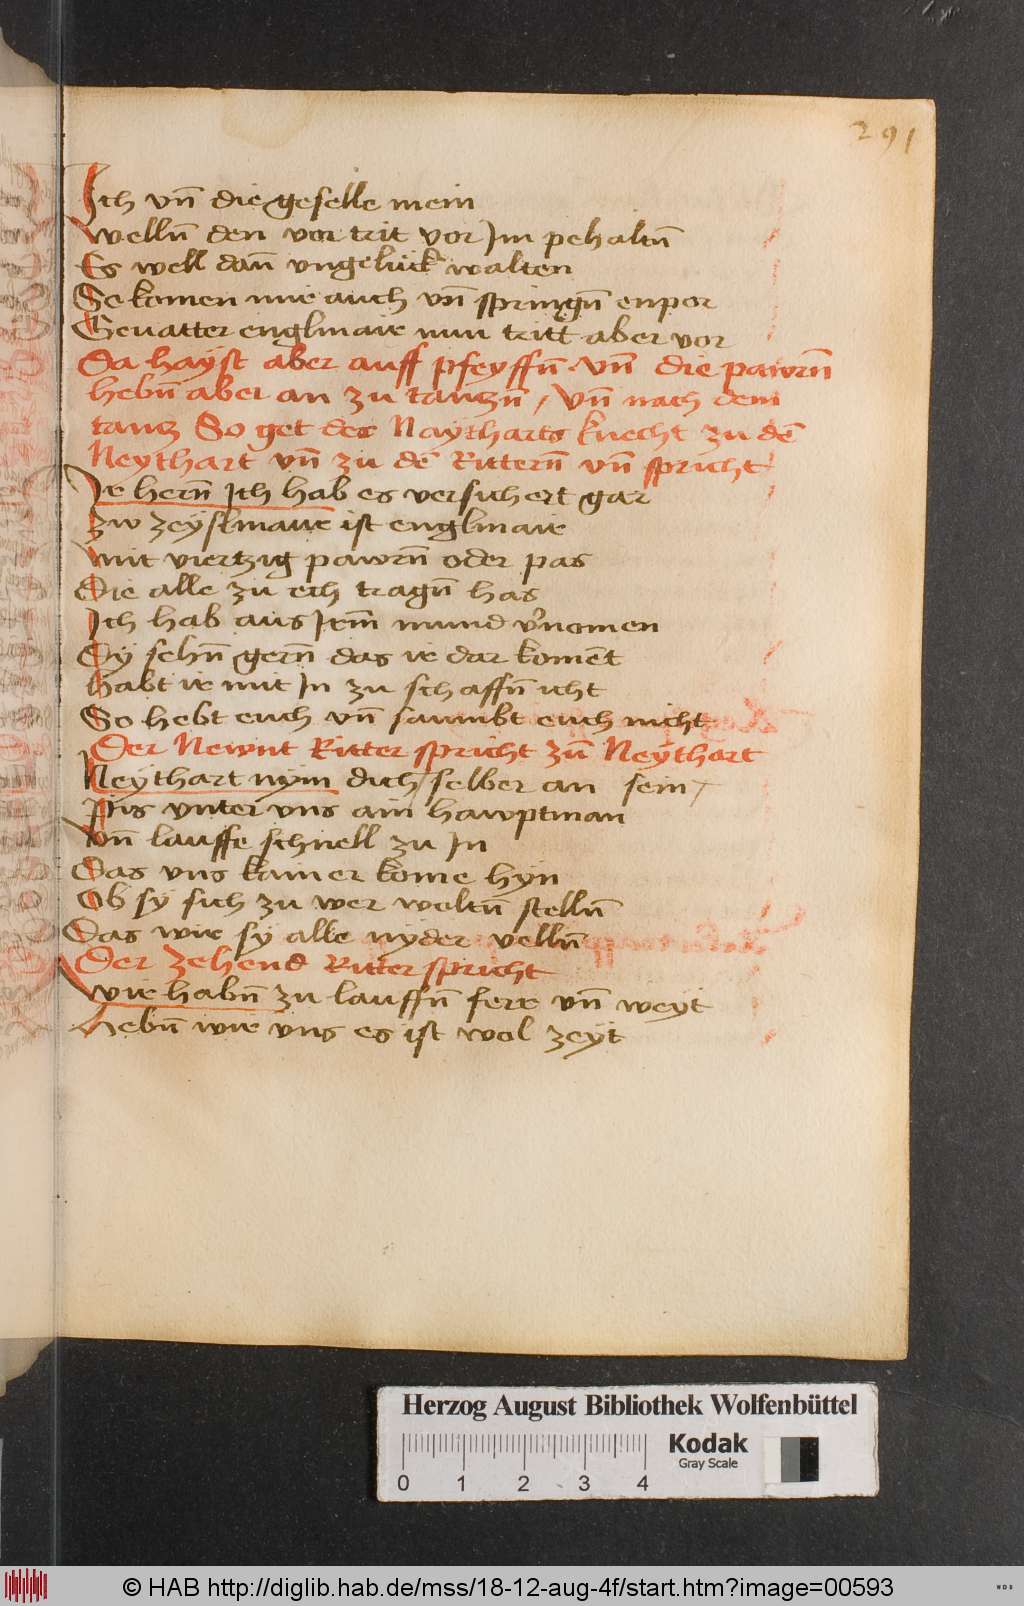 291
Ich vn̄ die geselle mein
Welln̄ den vor trit vor Im pehaltn̄
Es well dan̄ vngelück walten
So komen mir auch vn̄ springn̄ enpor
Gevatter englmair nun tritt aber vor
Da hayst aber auff pfeyffn̄ . vn̄ die pawrn̄
hebn̄ aber an zu tanczn̄ / vn̄ nach dem
tancz So get der Naytharts knecht zu dē
Neythart vn̄ zu dē Rittern̄ vn̄ spricht
Ir hern̄ Ich hab es versuchert gar
Zw zeyslmaur ist englmair
Mit viertzig pawrn̄ oder pas
Die alle zu ech tragn̄ has
Ich hab aus Irm̄ mund v̉nomen
Sy sehn̄ gern̄ das ir dar koment
habt ir mit In zu schaffn̄ icht
So hebt euch vn̄ sawmbt euch nicht
Der Newnt Ritter spricht zū Neythart
Neythart nym dich / selber an sein /
Pis vnter vns ain hawptman
Vn̄ lauffe schnell zu In
Das vns kainer kome hyn
Ob sy sich zu wer woltn̄ stelln̄
Das wir sy alle nyder velln̄
Der Zehend Ritter spricht
Wir habn̄ zu lauffn̄ ferr vn̄ weyt
hebn̄ wir vns es ist wol zeyt
Herzog August Bibliothek Wolfenbüttel
Kodak
Gray Scale
0 1 2 3 4
© HAB http://diglib.hab.de/mss/18-12-aug-4f/start.htm?image=00593